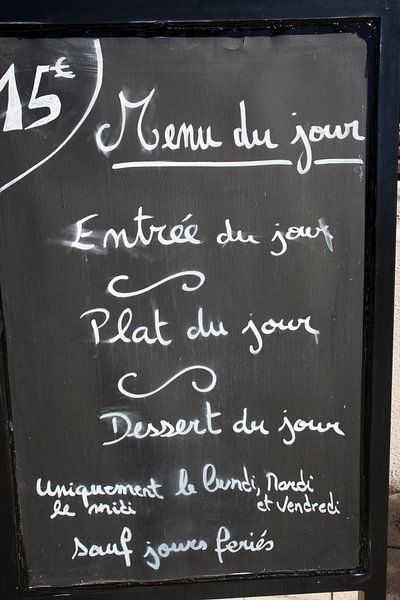 15€
Menu du jour
Entrée du jour
Plat du jour
Dessert du jour
Uniquement le lundi, Mardi
le midi et Vendredi
sauf jours feriés